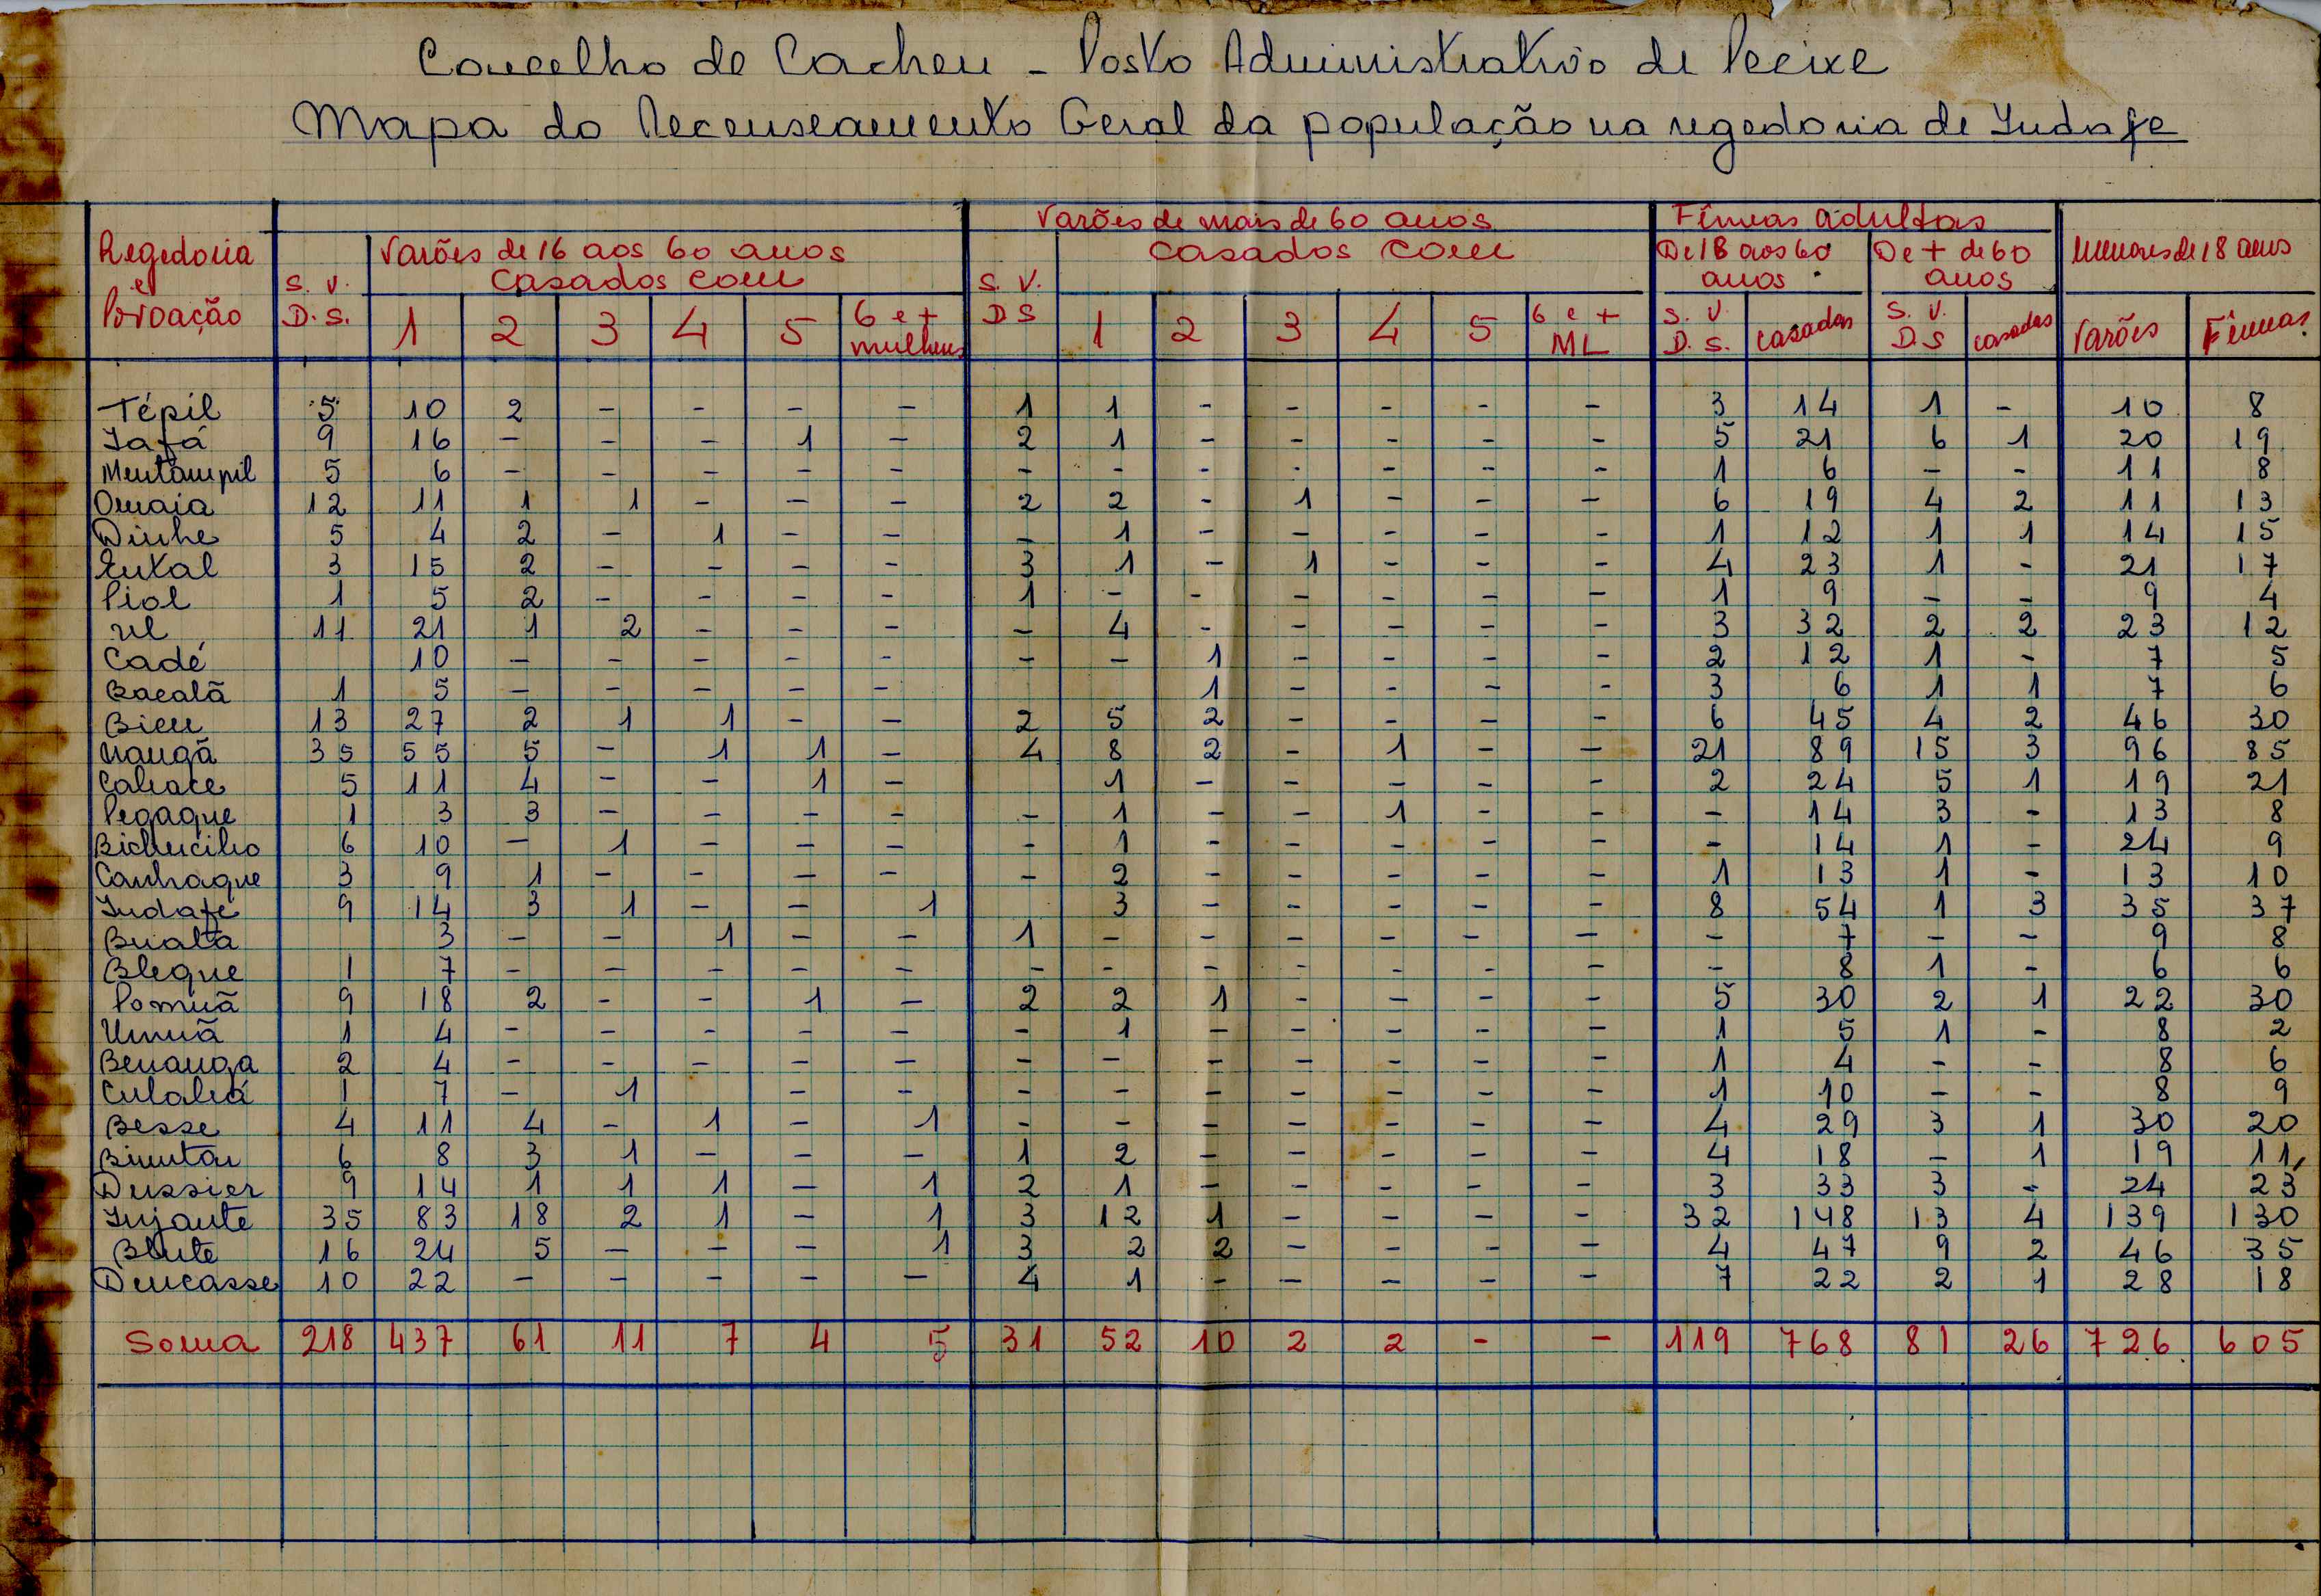 Concelho de Cacheu - Posto Administrativo de Pecixe
Mapa do Recenseamento Geral da população na regedoria de Indafe
Regedoria e Povoação
S. V. D. S.
Varões de 16 aos 60 anos
Casados com
1 2 3 4 5 6 e + mulheres
Varões de mais de 60 anos
S. V. D S
Casados com
1 2 3 4 5 6 e + ML
Fêmeas adultas
De 18 aos 60 anos
S. V. D. S. casadas
De + de 60 anos
S. V. D. S casadas
Menores de 18 anos
Varões Fêmeas
Tépil 5 10 2 - - - - 1 1 - - - - - 3 14 1 - 10 8
Jafá 9 16 - - - 1 - 2 1 - - - - - 5 21 6 1 20 19
Mentampil 5 6 - - - - - - - - - - - - 1 6 - - 11 8
Omaia 12 11 1 1 - - - 2 2 - 1 - - - 6 19 4 2 11 13
Dinhe 5 4 2 - 1 - - - 1 - - - - - 1 12 1 1 14 15
Eutal 3 15 2 - - - - 3 1 - 1 - - - 4 23 1 - 21 17
Piol 1 5 2 - - - - 1 - - - - - - 1 9 - - 9 4
Ul 11 21 1 2 - - - - 4 - - - - - 3 32 2 2 23 12
Cadé 10 - - - - - - - 1 - - - - 2 12 1 - 7 5
Bacalã 1 5 - - - - - 1 - - - - 3 6 1 1 7 6
Bieu 13 27 2 1 1 - - 2 5 2 - - - - 6 45 4 2 46 30
Nangã 35 55 5 - 1 1 - 4 8 2 - 1 - - 21 89 15 3 96 85
Caliace 5 11 4 - - 1 - 1 - - - - - 2 24 5 1 19 21
Pegaque 1 3 3 - - - - - 1 - - 1 - - - 14 3 - 13 8
6 10 - 1 - - - - 1 - - - - - - 14 1 - 24 9
Canhaque 3 9 1 - - - - - 2 - - - - - 1 13 1 - 13 10
Indafe 9 14 3 1 - - 1 3 - - - - - 8 54 1 3 35 37
Buala 3 - - 1 - - 1 - - - - - - - 7 - - 9 8
Bleque 1 7 - - - - - - - - - - - - - 8 1 - 6 6
Pomuã 9 18 2 - - 1 - 2 2 1 - - - - 5 30 2 1 22 30
Umuã 1 4 - - - - - - 1 - - - - - 1 5 1 - 8 2
Benanga 2 4 - - - - - - - - - - - - 1 4 - - 8 6
Culaliá 1 7 - 1 - - - - - - - - - 1 10 - - 8 9
Besse 4 11 4 - 1 - 1 - - - - - - - 4 29 3 1 30 20
Bimntar 6 8 3 1 - - - 1 2 - - - - - 4 18 - 1 19 11
Dussier 9 14 1 1 1 - 1 2 1 - - - - - 3 33 3 - 24 23
Injante 35 83 18 2 1 - 1 3 12 1 - - - - 32 148 13 4 139 130
Blute 16 24 5 - - - 1 3 2 2 - - - - 4 47 9 2 46 35
Dencasse 10 22 - - - - - 4 1 - - - - - 7 22 2 1 28 18
Soma 218 437 61 11 7 4 5 31 52 10 2 2 - - 119 768 81 26 726 605